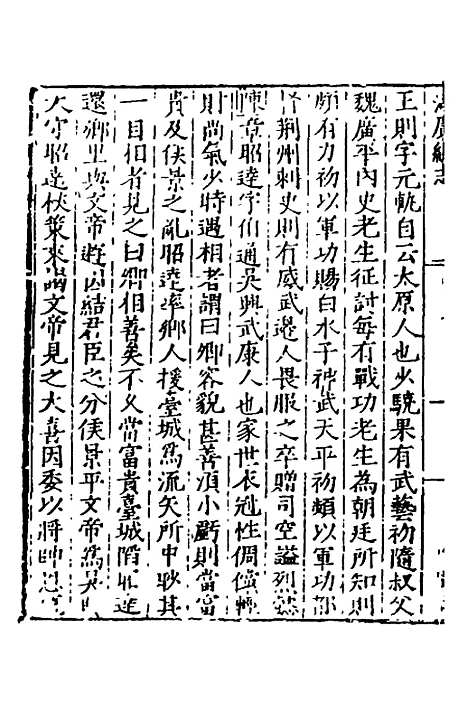 廣
志
正則字元軌自云太原人也少驍果有武藝初隨叔父
魏廣平內史老生征討每有戰功老生為朝廷所知則
頗有力初以軍功賜白水子神武天平初頻以軍功
荆州刺史則有威武邊人畏服之卒贈司空諡烈懿
陳章昭逹字伯通吳興武康人也家世衣冠性倜儻輕
則尚氣少時遇相者謂曰卿容貌甚善須小虧則當富
貴及侯景之亂昭逹率鄉人援臺城為流矢所中眇其
一目相者見之曰卿相善矣不久當富貴臺城陷昭逹
還鄉里與文帝遊因結君臣之分侯景平文帝為吳
太守昭逹杖策來謁文帝見之大喜因委以將帥恩